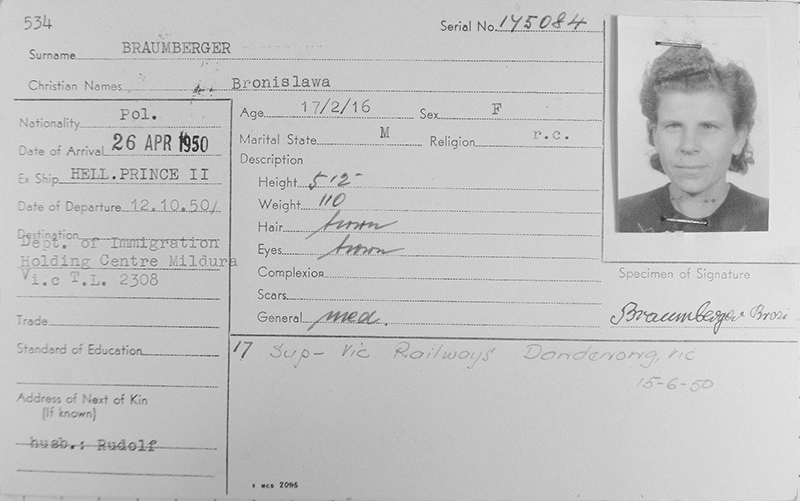 534
Serial No. 145084
Surname BRAUMBERGER
Christian Names Bronislawa
Nationality Pol.
Date of Arrival 26 APR 1950
Ex Ship HELL.PRINCE II
Date of Departure 12.10.50/
Destination
Dept. of Immigration
Holding Centre Mildura
Vi.c T.L. 2308
Trade
Standard of Education
Address of Next of Kin
(If known)
husb.: Rudolf
Age 17/2/16 Sex F
Marital State M Religion r.c.
Description
Height 5 1 2
Weight 110
Hair brown
Eyes brown
Complexion
Scars
General med.
Specimen of Signature
Braumberger Broni
17 Sup- Vic Railways Dandenong, Vic
15-6-50
F MCD 2085